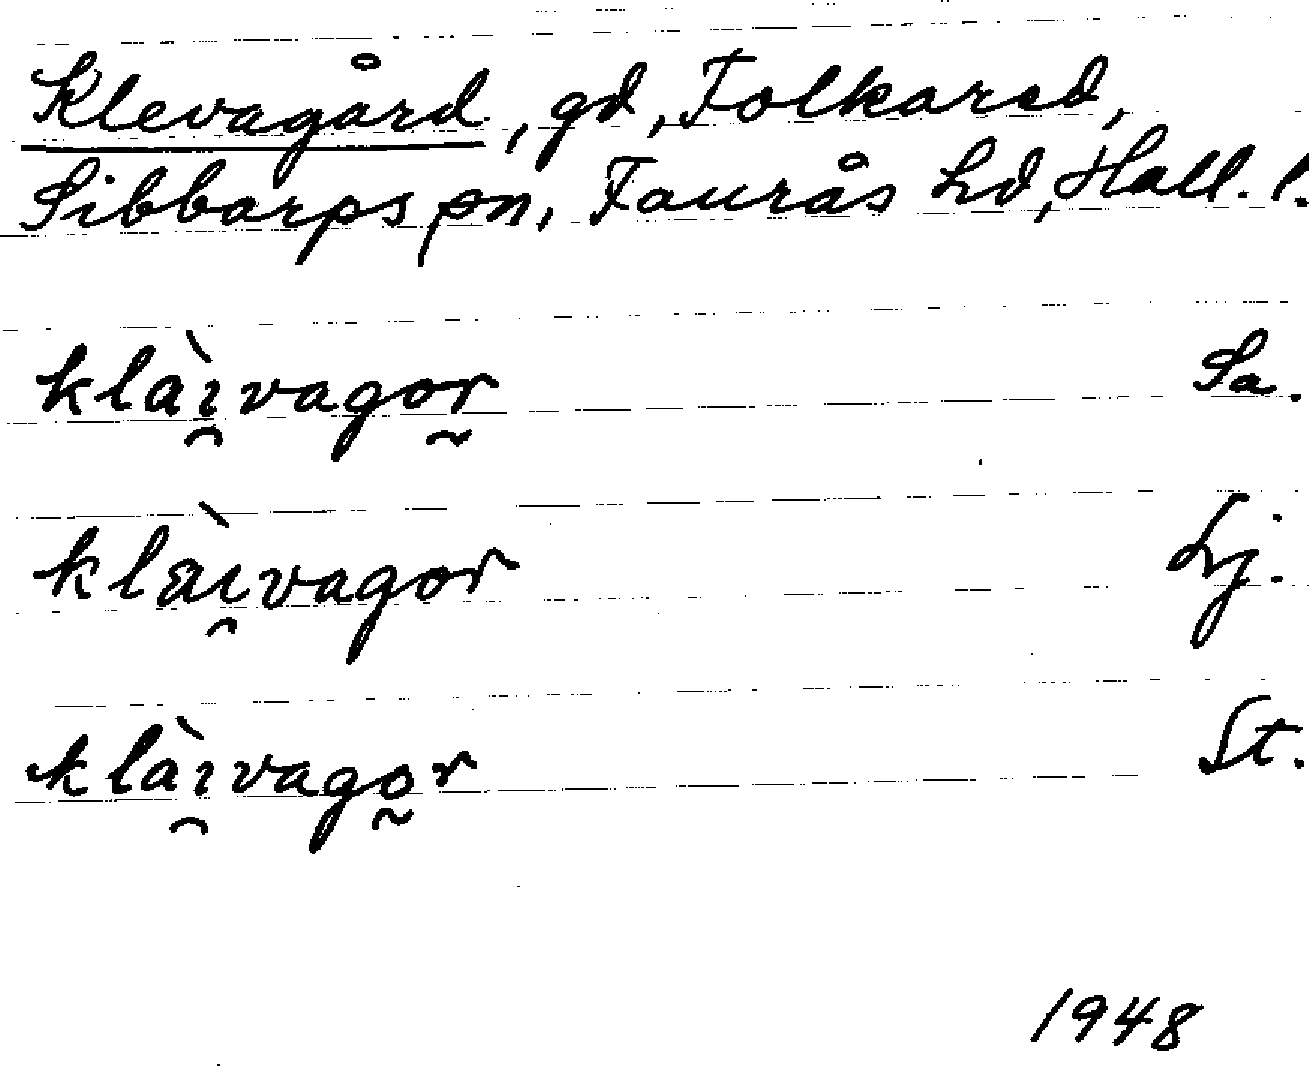 Klevagård, gd, Folkared,
Sibbarps sn, Faurås hd, Hall. l.
klàı̯vagor̰ Sa.
klàı̯vagor Lj.
klàı̯vago̰r St.
1948